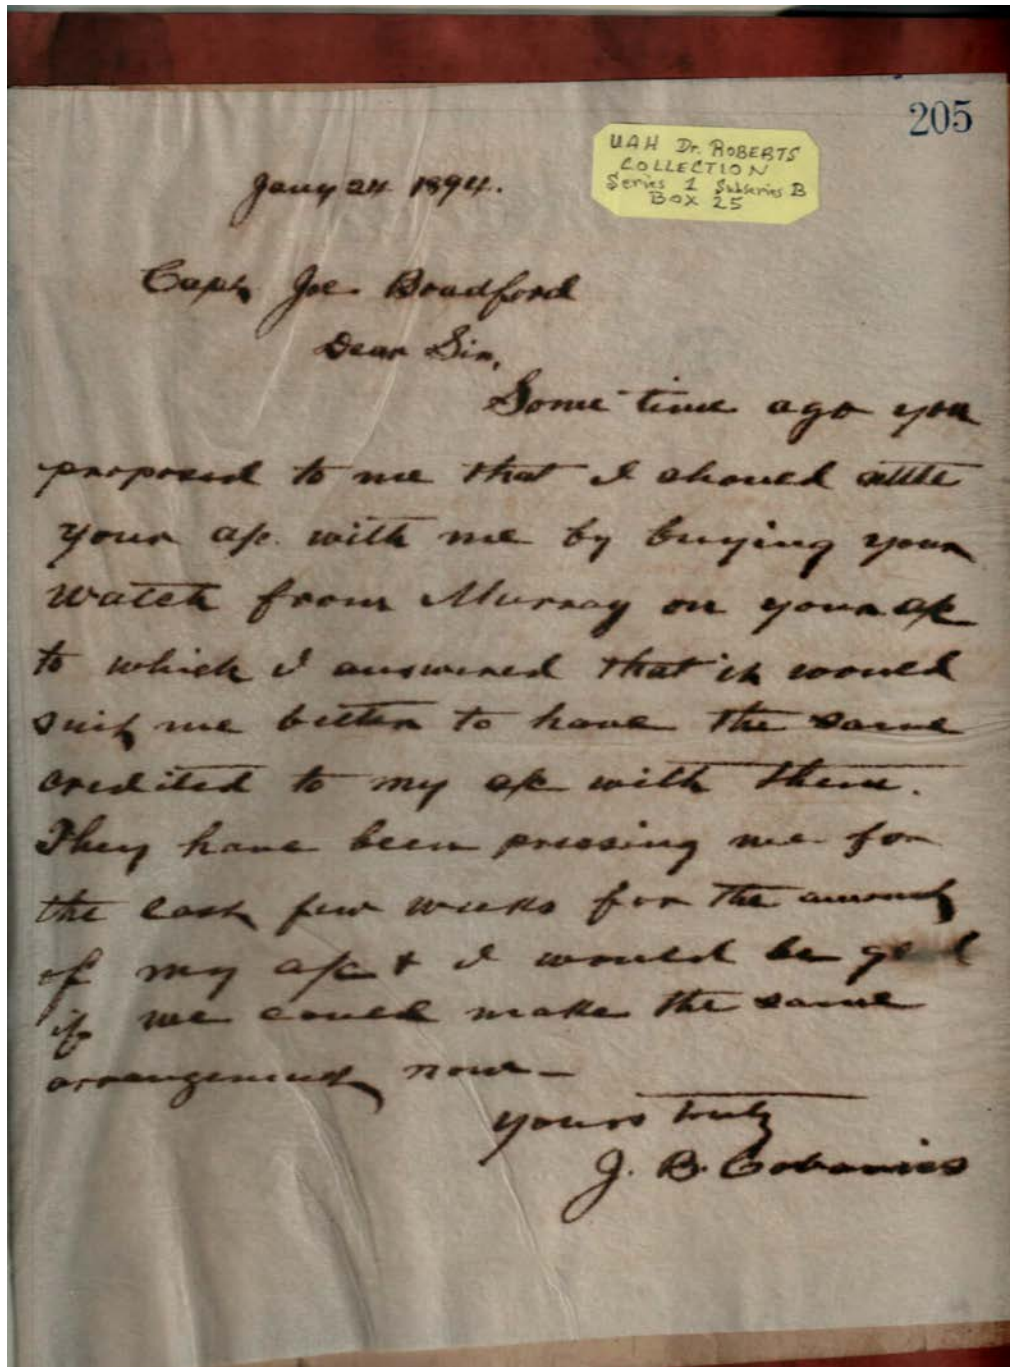 205
UAH Dr. ROBERTS
COLLECTION
Series 1 Subseries B
BOX 25
Jany 24 1894.
Capt Joe Bradford
Dear Sir,
Some time ago you
proposed to me that I should settle
your a/c. with me by buying your
watch from Murray on your a/c
to which I answered that it would
suit me better to have the same
credited to my a/c with them.
They have been pressing me for
the last few weeks for the amount
of my a/c & I would be glad
if we could make the same
arrangement now —
yours truly
J. B. Cabaniss